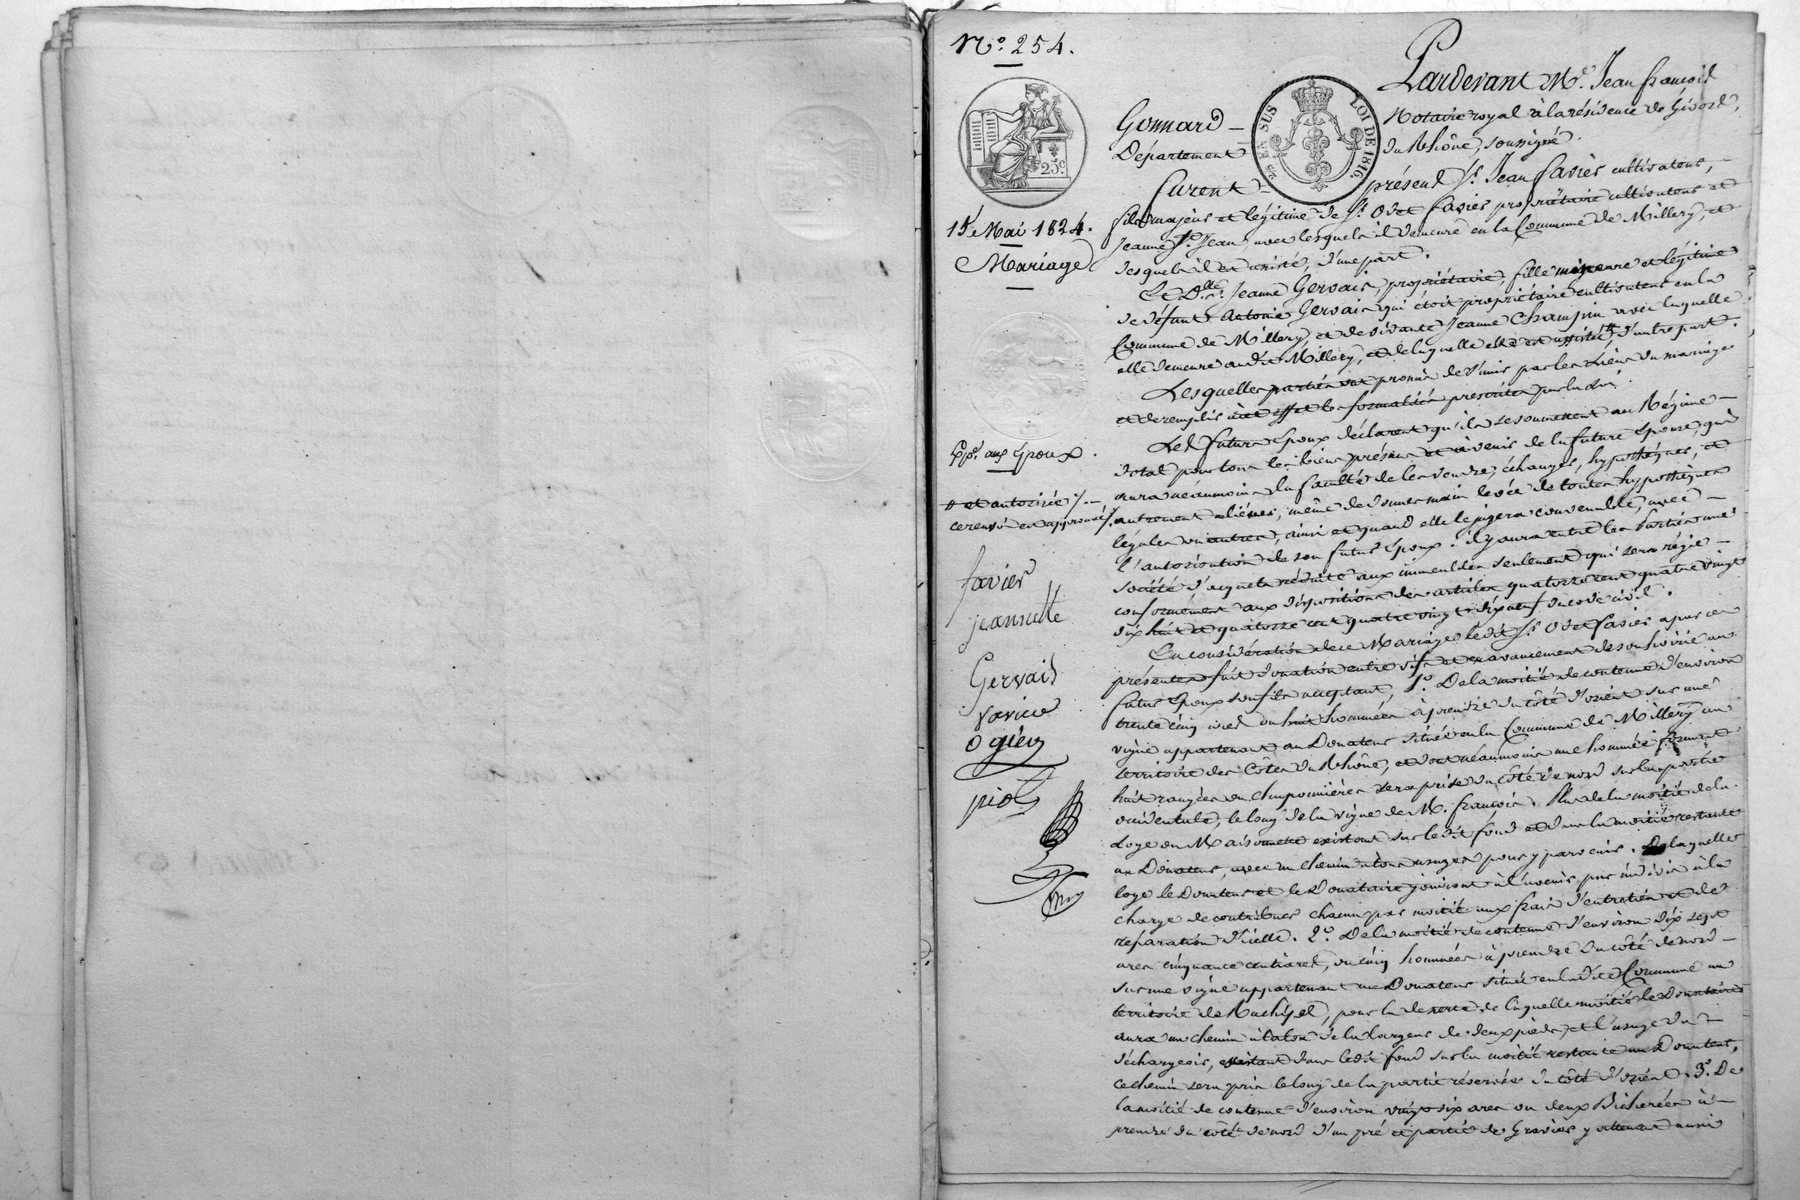 N.o 254.
Pardevant M.e Jean François
Gonnard – Notaire royal à la résidence de Givord,
Département du Rhône, soussigné.
EN SUS
LOI DE 1816.
25 c
Furent présens Sr. Jean Favier cultivateur, –
fils majeur et légitime de Sr. Odet Favier propriétaire cultivateur et
15 Mai 1824.
Jeanne St. Jean, avec lesquels il demeure en la Commune de Millery, et
Mariage
desquels il est assisté, d'une part.
Et Dlle. Jeanne Gervais, propriétaire, fille mineure et légitime
de défunt Antoine Gervais qui étoit propriétaire cultivateur en la
Commune de Millery, et de vivante Jeanne Champin avec laquelle
elle demeure audit Millery, et de laquelle elle est assistée, d'autre part.
Lesquelles parties ont promis de s'unir par les Liens du mariage
et de remplir à cet effet les formalités prescrites par la Loi.
Exp. aux époux.
Les futurs Epoux déclarent qu'ils se soumettent au Régime –
dotal pour tous les biens présens et à venir de la future Epouse, qui
aura néanmoins la faculté de les vendre, échanger, hypothéquer, et
et autorisée /. –
ce renvoi est approuvé /.
autrement aliéner, même de donner main levée de toutes hypothèques
légales ou autres, ainsi et quand elle le jugera convenable, avec –
l'autorisation de son futur Epoux. il y aura entre les Parties une
société d'acquets réduite aux immeubles seulement qui sera régie –
conformément aux dispositions des articles quatorze cent quatre vingt
dix huit et quatorze cent quatre vingt dix neuf du code civil.
favier
jeannette
Gervais
Varice
Ogier
piot
En considération de ce Mariage ledit Sr. Odet Favier a par ces
présentes fait donation entre vifs et en avancement de son hoirie au
futur Epoux son fils acceptant, 1.o De la moitié de contenue d'environ
trente cinq ares ou huit hommées à prendre du côté d'orient sur une
vigne appartenant au Donateur située en la Commune de Millery au
territoire des Côtes du Rhône, et dont néanmoins une hommée formant
huit rangées ou champonnières sera prise du côté de nord sur la partie
occidentale, le long de la vigne de M. françois. Plus de la moitié de la
Loge ou Maisonnette existant sur ledit fond et dans la moitié restante
au Donateur, avec un chemin à tous usages pour y parvenir. De laquelle
loge le Donateur et le Donataire jouiront à l'avenir par indivis à la
charge de contribuer chacun par moitié aux frais d'entretien et de
réparation d'icelle. 2.o De la moitié de contenue d'environ dix sept
ares cinquante centiares, ou cinq hommées à prendre du côté de nord –
sur une vigne appartenant au Donateur située en ladite Commune au
territoire de , pour la deserte de laquelle moitié le Donataire
aura un chemin à talon de la largeur de deux pieds, et l'usage du –
déchargeoir, existant dans ledit fond sur la moitié restante au Donateur,
ce chemin sera pris le long de la partie réservée du côté d'orient. 3.o De
la moitié de contenue d'environ vingt six ares ou deux Bicherées à –
prendre du côté de nord d'un pré et partie de Gravier y attenant aussi